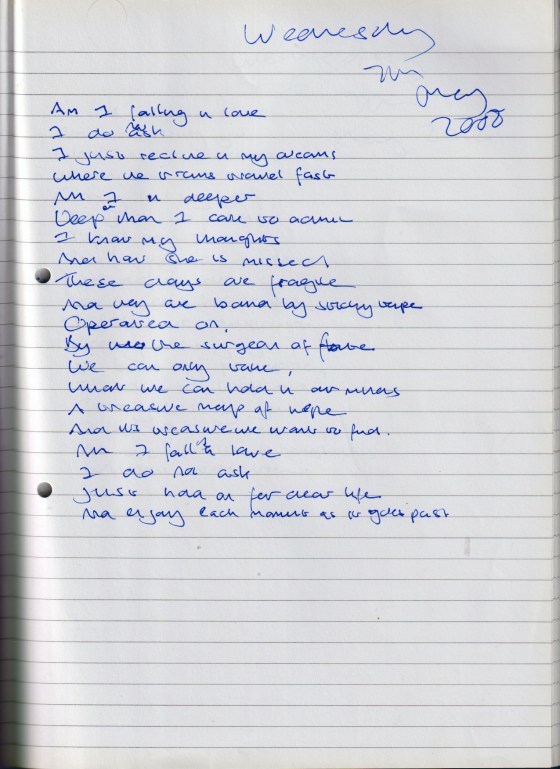 Wednesday
7th
May
2008
Am I falling in love
I do not ask
I just recline in my dreams
Where the trams travel fast
Am I in deeper
Deeper than I care to admit
I know my thoughts
And how she is missed
These days are fragile
And they are bound by sticky tape
Operated on.
By the surgeon of
We can only take,
What we can hold in our minds
A treasure map of hope
And its treasure we want to find.
Am I falling in love
I do not ask
Just hold on for dear life
And enjoy each moment as it goes past